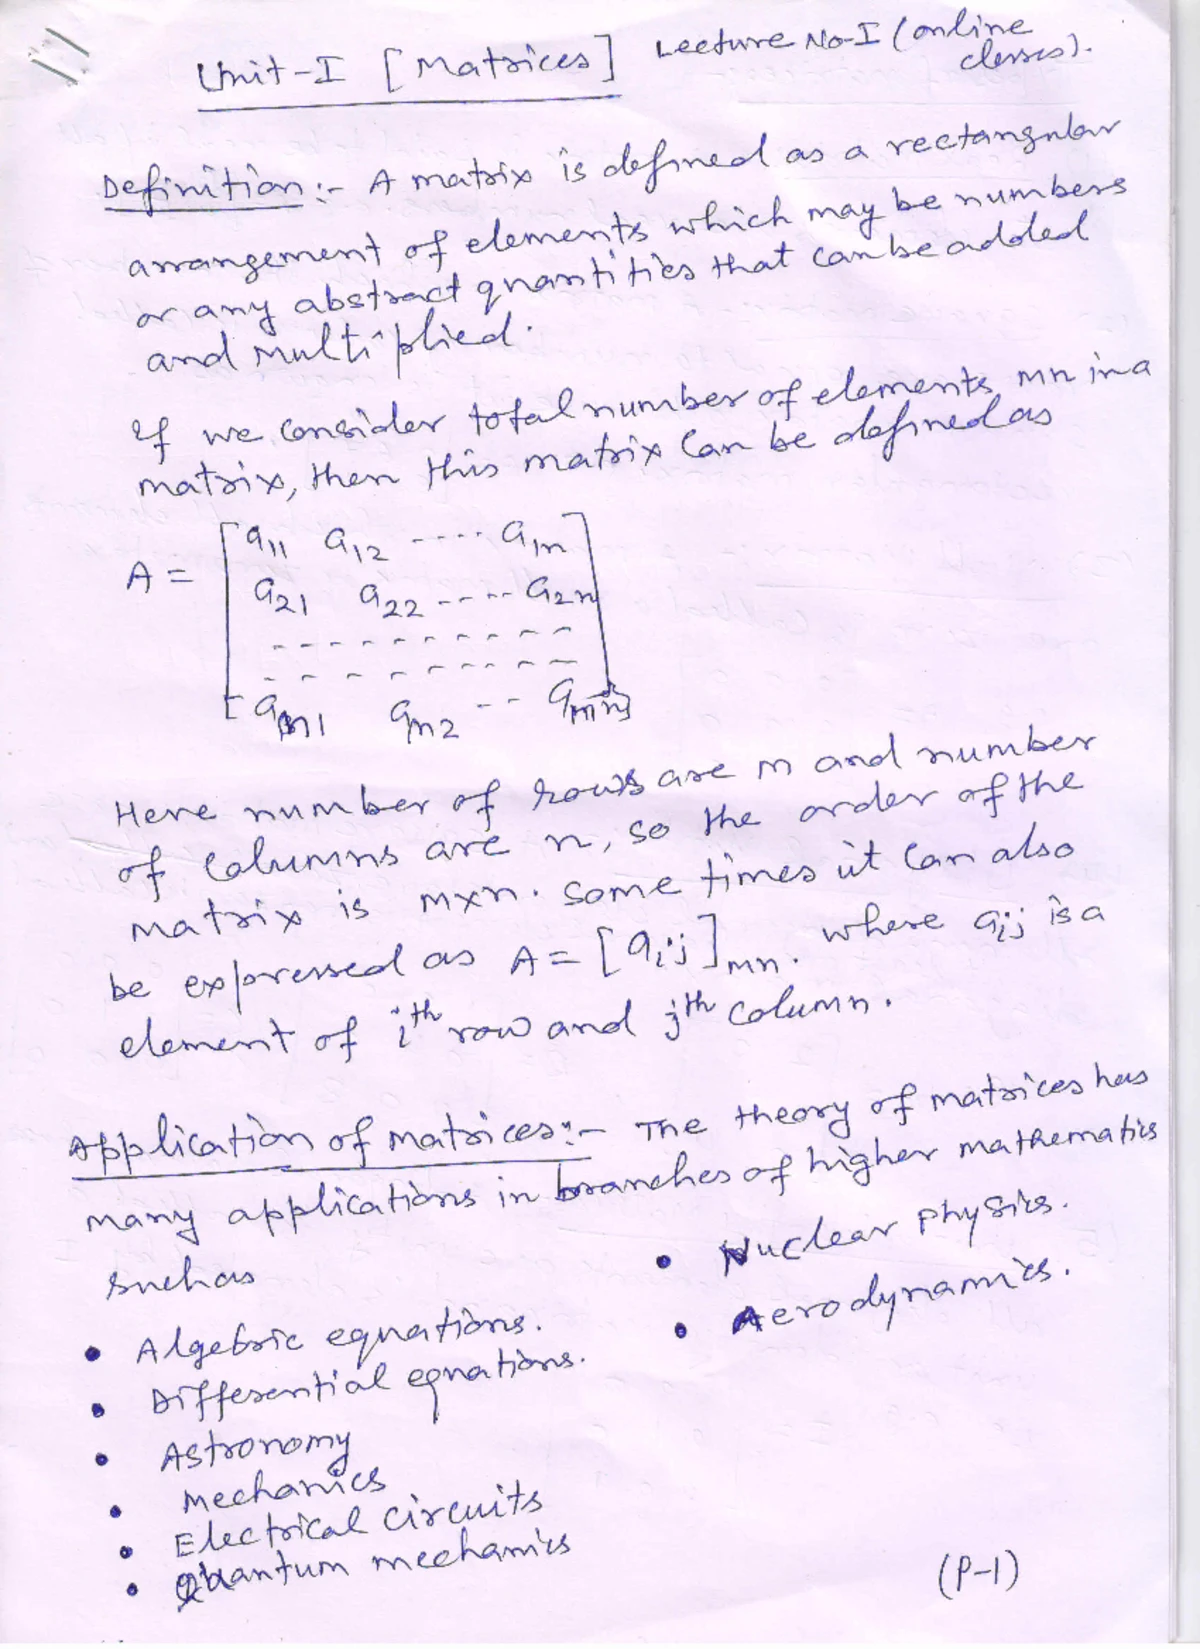 Unit-I [Matrices] Lecture No-I (online classes).
Definition:- A matrix is defined as a rectangular
arrangement of elements which may be numbers
or any abstract quantities that can be added
and multiplied.
If we consider total number of elements mn in a
matrix, then this matrix can be defined as
A = [ a11 a12 ---- a1n ]
a21 a22 ---- a2n
- - - - - - - - - - -
- - - - - - - - - - -
am1 am2 -- amn
Here number of rows are m and number
of columns are n, so the order of the
matrix is m×n. Some times it can also
be expressed as A = [aij]mn. where aij is a
element of ith row and jth column.
Application of matrices:- The theory of matrices has
many applications in branches of higher mathematics
such as
• Nuclear physics.
• Aerodynamics.
• Algebric equations.
• Differential equations.
• Astronomy
• Mechanics
• Electrical circuits
• Quantum mechanics
(P-1)